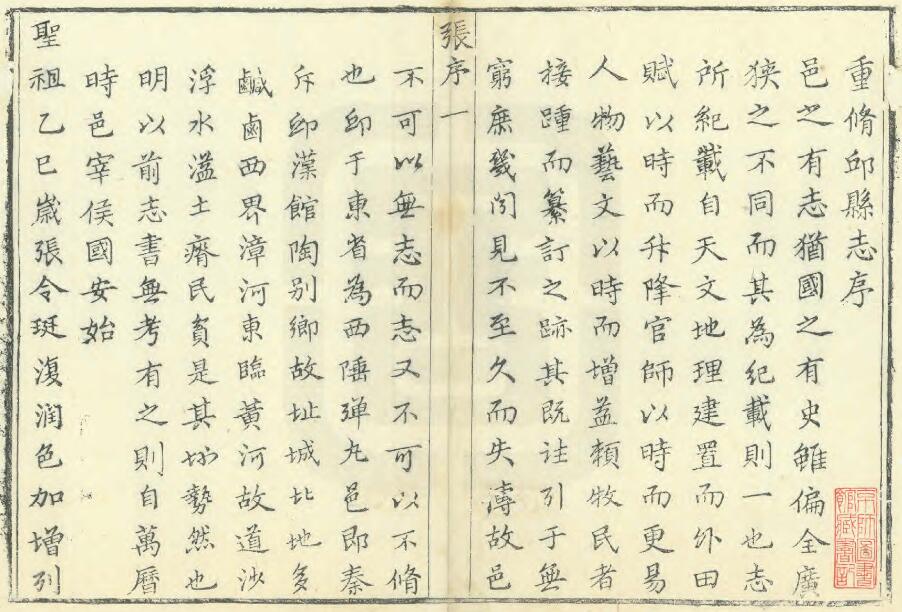 重脩邱縣志序
邑之有志猶國之有史雖偏全廣
狹之不同而其為紀載則一也志
所紀載自天文地理建置而外田
賦以時而升降官師以時而更易
人物藝文以時而增益頼牧民者
接踵而纂訂之跡其既徃引于無
窮庶幾闻見不至久而失濤故邑
張序 一
不可以無志而志又不可以不脩
也邱于東省為西陲弹丸邑即秦
斥邱漢館陶别鄉故址城北地多
鹹鹵西界漳河東臨黃河故道沙
浮水溢土瘠民貧是其坳勢然也
明以前志書無考有之則自萬曆
時邑宰侯國安始
聖祖乙巳嵗張令珽復润色加增列
京師圖書
館藏書記